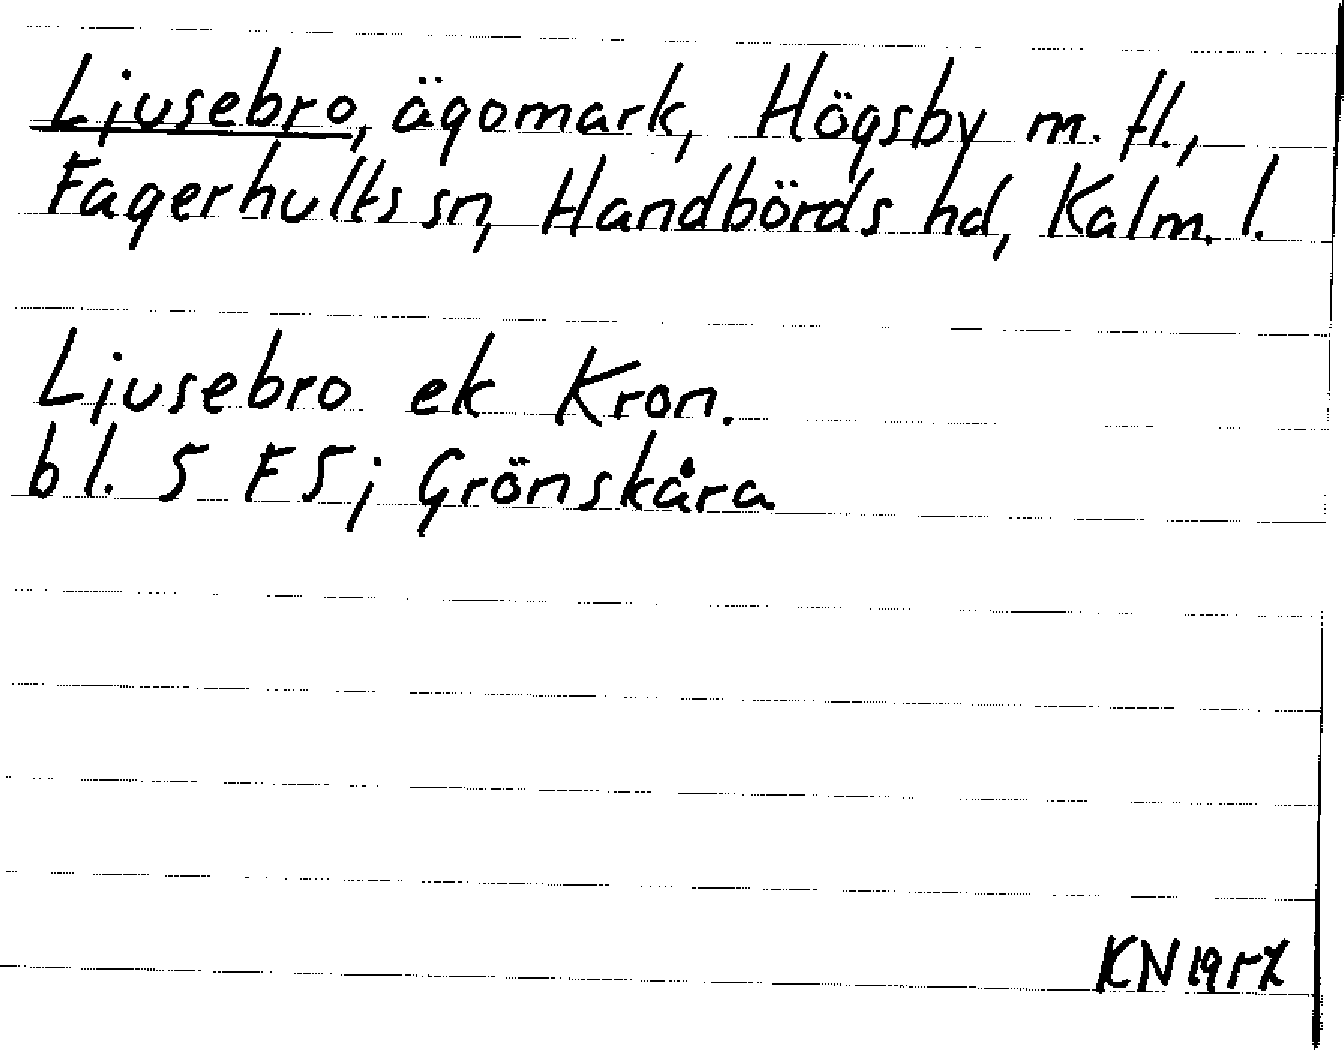 Ljusebro, ägomark, Högsby m. fl.,
Fagerhults sn, Handbörds hd, Kalm. l.
Ljusebro ek Kron.
bl. 5 F 5 j Grönskåra
KN 1957